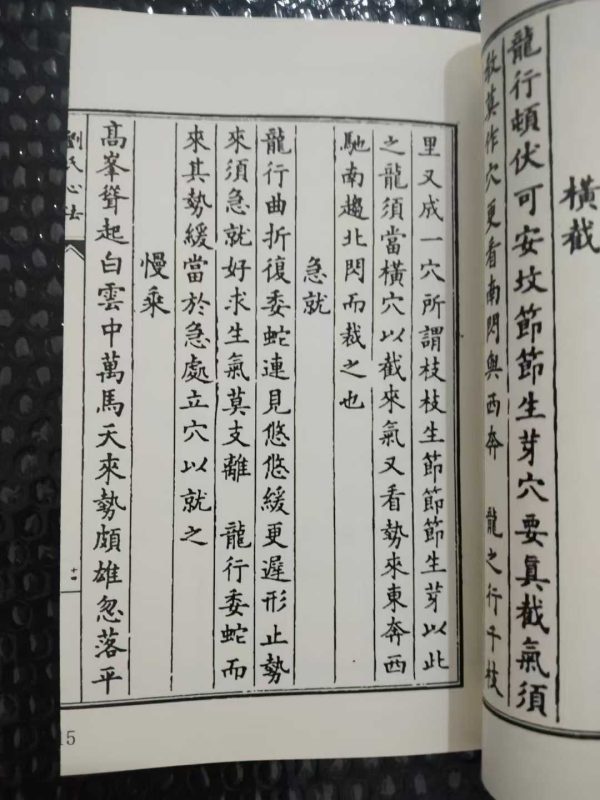 橫截
龍行頓伏可安墳節節生芽穴要眞截氣須
教莫作穴更看南閃與西奔　龍之行千枝
里又成一穴所謂枝枝生節節節生芽以此
之龍須當橫穴以截來氣又看勢來東奔西
馳南趨北閃而裁之也
急就
龍行曲折復委蛇連見悠悠緩更遲形止勢
來須急就好求生氣莫支離　龍行委蛇而
來其勢緩當於急處立穴以就之
慢乘
高峯聳起白雲中萬馬天來勢頗雄忽落平
劉氏心法
十四
15